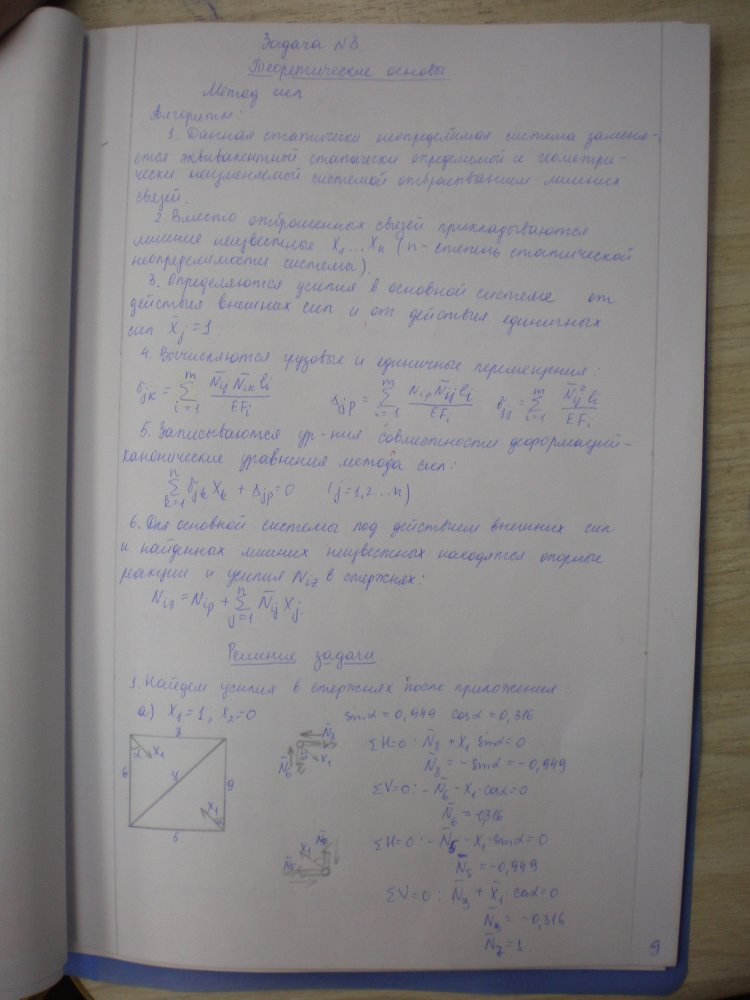 Задача №3.
Теоретические основы
Метод сил
Алгоритм:
1. Данная статически неопределимая система заменя-
ется эквивалентной статически определимой и геометри-
чески неизменяемой системой отбрасыванием лишних
связей.
2. Вместо отброшенных связей прикладываются
лишние неизвестные X₁...Xₙ (n - степень статической
неопределимости системы).
3. Определяются усилия в основной системе от
действия внешних сил и от действия единичных
сил X̄ⱼ=1.
4. Вычисляются грузовые и единичные перемещения:
δⱼₖ = Σ(i=1..m) N̄ᵢⱼN̄ᵢₖlᵢ/EFᵢ Δⱼₚ = Σ(i=1..m) NᵢₚN̄ᵢⱼlᵢ/EFᵢ δⱼⱼ = Σ(i=1..m) N̄ᵢⱼ²lᵢ/EFᵢ
5. Записываются ур-ния совместности деформаций-
канонические уравнения метода сил:
Σ(k=1..n) δⱼₖXₖ + Δⱼₚ=0 (j=1,2...n)
6. Для основной системы под действием внешних сил
и найденных лишних неизвестных находятся опорные
реакции и усилия Niz в стержнях:
Niz = Nip + Σ(j=1..n) N̄ᵢⱼ Xⱼ.
Решение задачи
1. Найдем усилия в стержнях после приложения:
а) X₁=1; X₂=0 sinα=0,949 cosα=0,316
8
α X₁
6
9
X₁
5
N̄₈
N̄₆
X₁
ΣH=0: N̄₈ + X₁ sinα=0
N̄₈ = -sinα = -0,949
ΣV=0: -N̄₆ - X₁·cosα=0
X₁
N̄₅
ΣH=0: -N̄₅ - X₁·sinα=0
N̄₅ = -0,949
ΣV=0: N̄₉ + X̄₁·cosα=0
N̄₉ = -0,316
N̄₇ = 1.
9